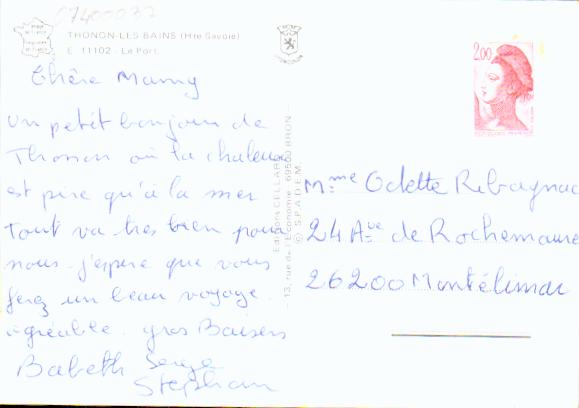 07400037
THONON-LES BAINS (Hte Savoie)
E 11102 - Le Port
Chère Mamy
Un petit bonjour de
Thonon où la chaleur
est pire qu'à la mer
Tout va tres bien pour
nous. j'espere que vous
ferez un beau voyage.
agréable. gros Baisers
Babeth Serge
Stephan
Editions CELLARD
13, rue de l'Economie 69500 BRON
© S.P.A.D.E.M.
2,00
Mme Odette Ribagnac
24 Ave de Rochemaure
26200 Montélimar